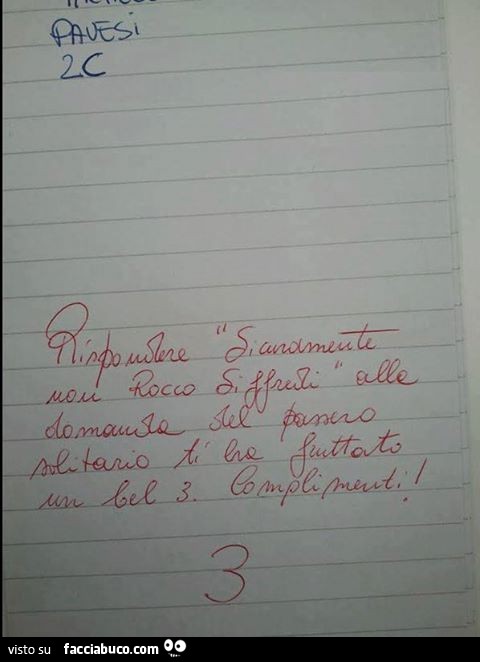 PAVESI
2C
Rispondere "Sicuramente
non Rocco Siffredi" alla
domanda del passero
solitario ti ha fruttato
un bel 3. Complimenti!
3
visto su facciabuco.com